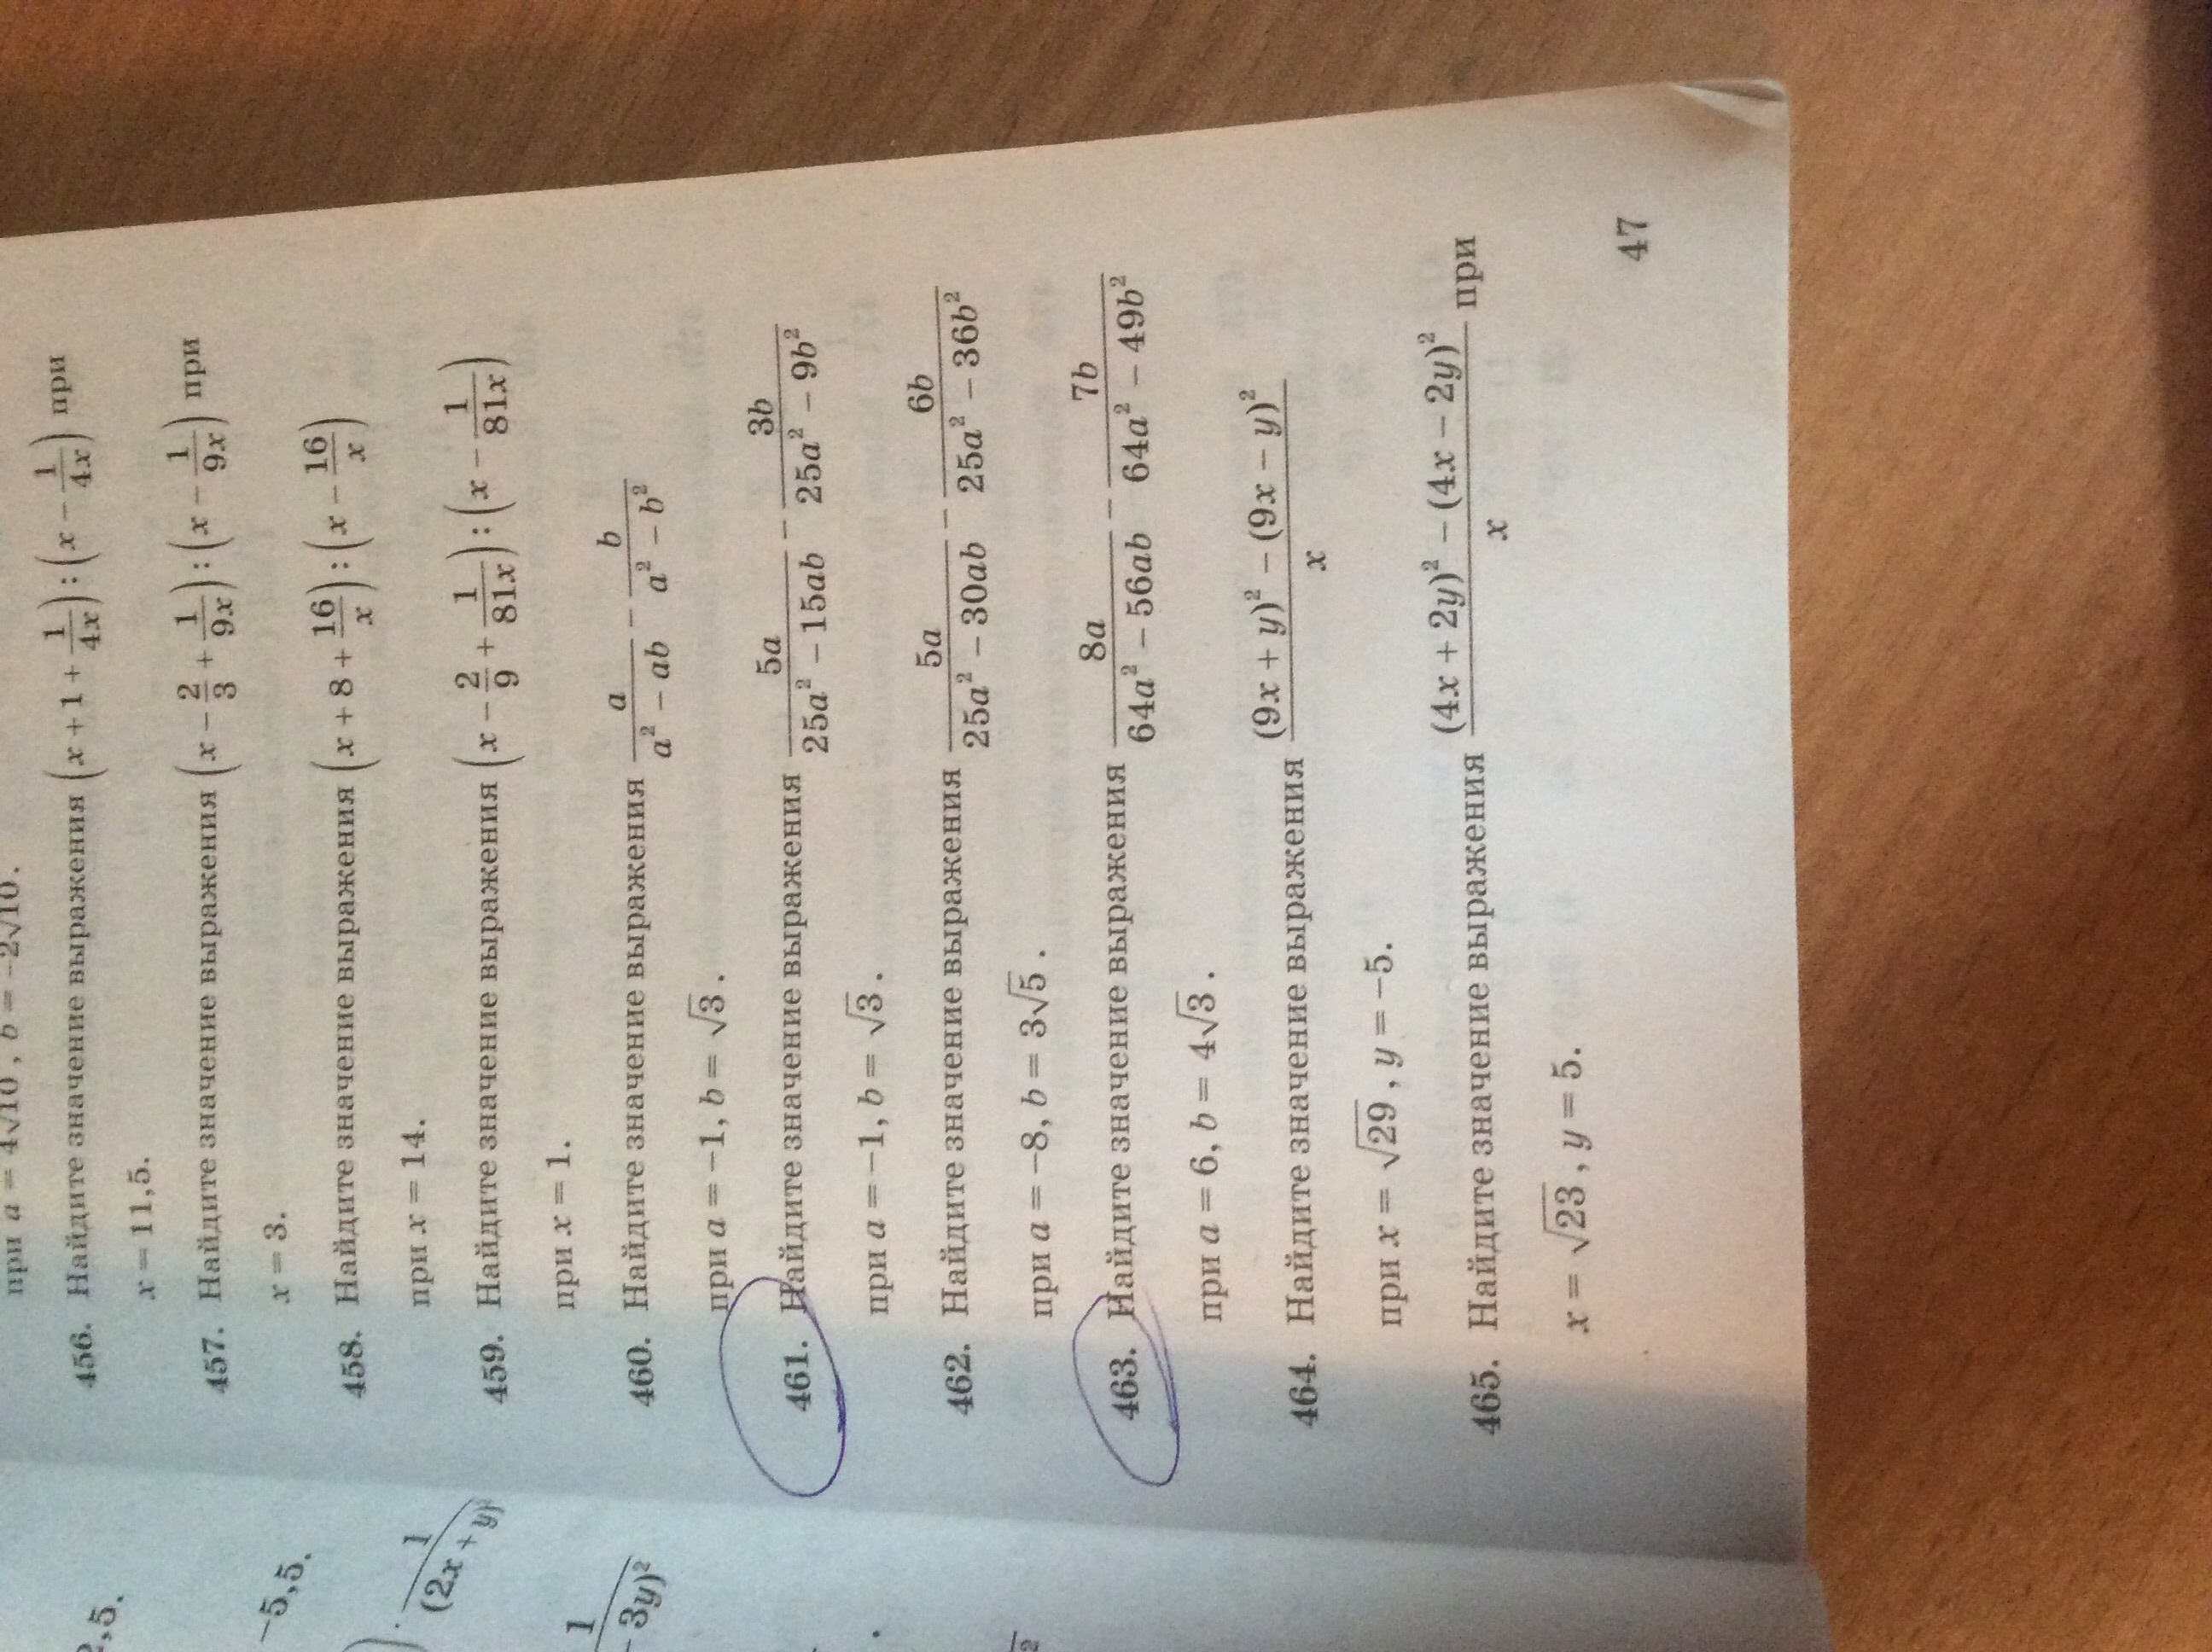 при a = 4√10, b = −2√10.
456. Найдите значение выражения (x + 1 + 1/(4x)) : (x − 1/(4x)) при
x = 11,5.
457. Найдите значение выражения (x − 2/3 + 1/(9x)) : (x − 1/(9x)) при
x = 3.
458. Найдите значение выражения (x + 8 + 16/x) : (x − 16/x)
при x = 14.
459. Найдите значение выражения (x − 2/9 + 1/(81x)) : (x − 1/(81x))
при x = 1.
460. Найдите значение выражения a/(a² − ab) − b/(a² − b²)
при a = −1, b = √3.
461. Найдите значение выражения 5a/(25a² − 15ab) − 3b/(25a² − 9b²)
при a = −1, b = √3.
462. Найдите значение выражения 5a/(25a² − 30ab) − 6b/(25a² − 36b²)
при a = −8, b = 3√5.
463. Найдите значение выражения 8a/(64a² − 56ab) − 7b/(64a² − 49b²)
при a = 6, b = 4√3.
464. Найдите значение выражения ((9x + y)² − (9x − y)²)/x
при x = √29, y = −5.
465. Найдите значение выражения ((4x + 2y)² − (4x − 2y)²)/x при
x = √23, y = 5.
47
−5,5.
1/(2x + y)